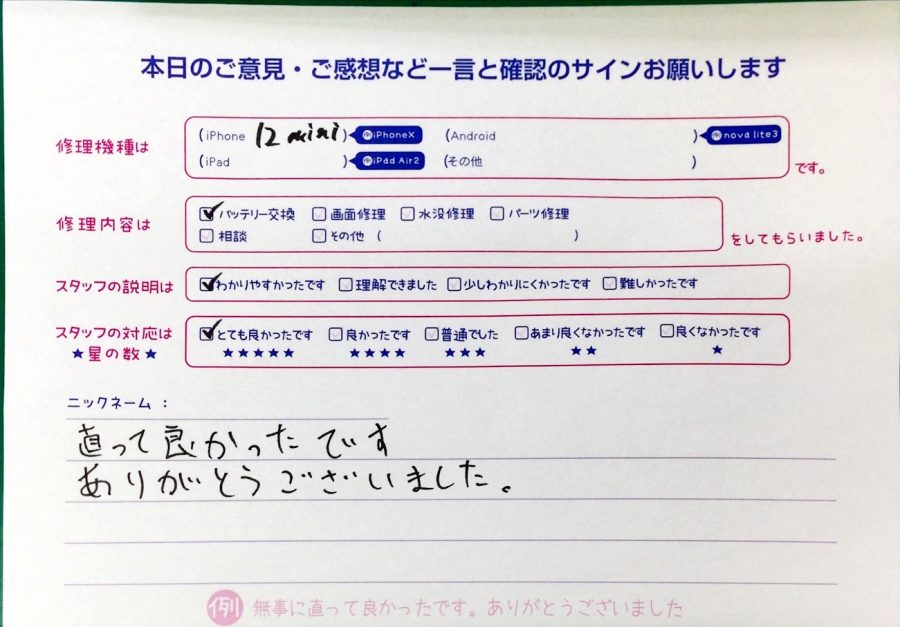 本日のご意見・ご感想など一言と確認のサインお願いします
修理機種は (iPhone 12 mini) 例iPhoneX (Android ) 例nova lite3
(iPad ) 例iPad Air2 (その他 ) です。
修理内容は バッテリー交換 画面修理 水没修理 パーツ修理
相談 その他 ( ) をしてもらいました。
スタッフの説明は わかりやすかったです 理解できました 少しわかりにくかったです 難しかったです
スタッフの対応は とても良かったです 良かったです 普通でした あまり良くなかったです 良くなかったです
★星の数★ ★★★★★ ★★★★ ★★★ ★★ ★
ニックネーム：
直って良かったです
ありがとうございました。
例 無事に直って良かったです。ありがとうございました